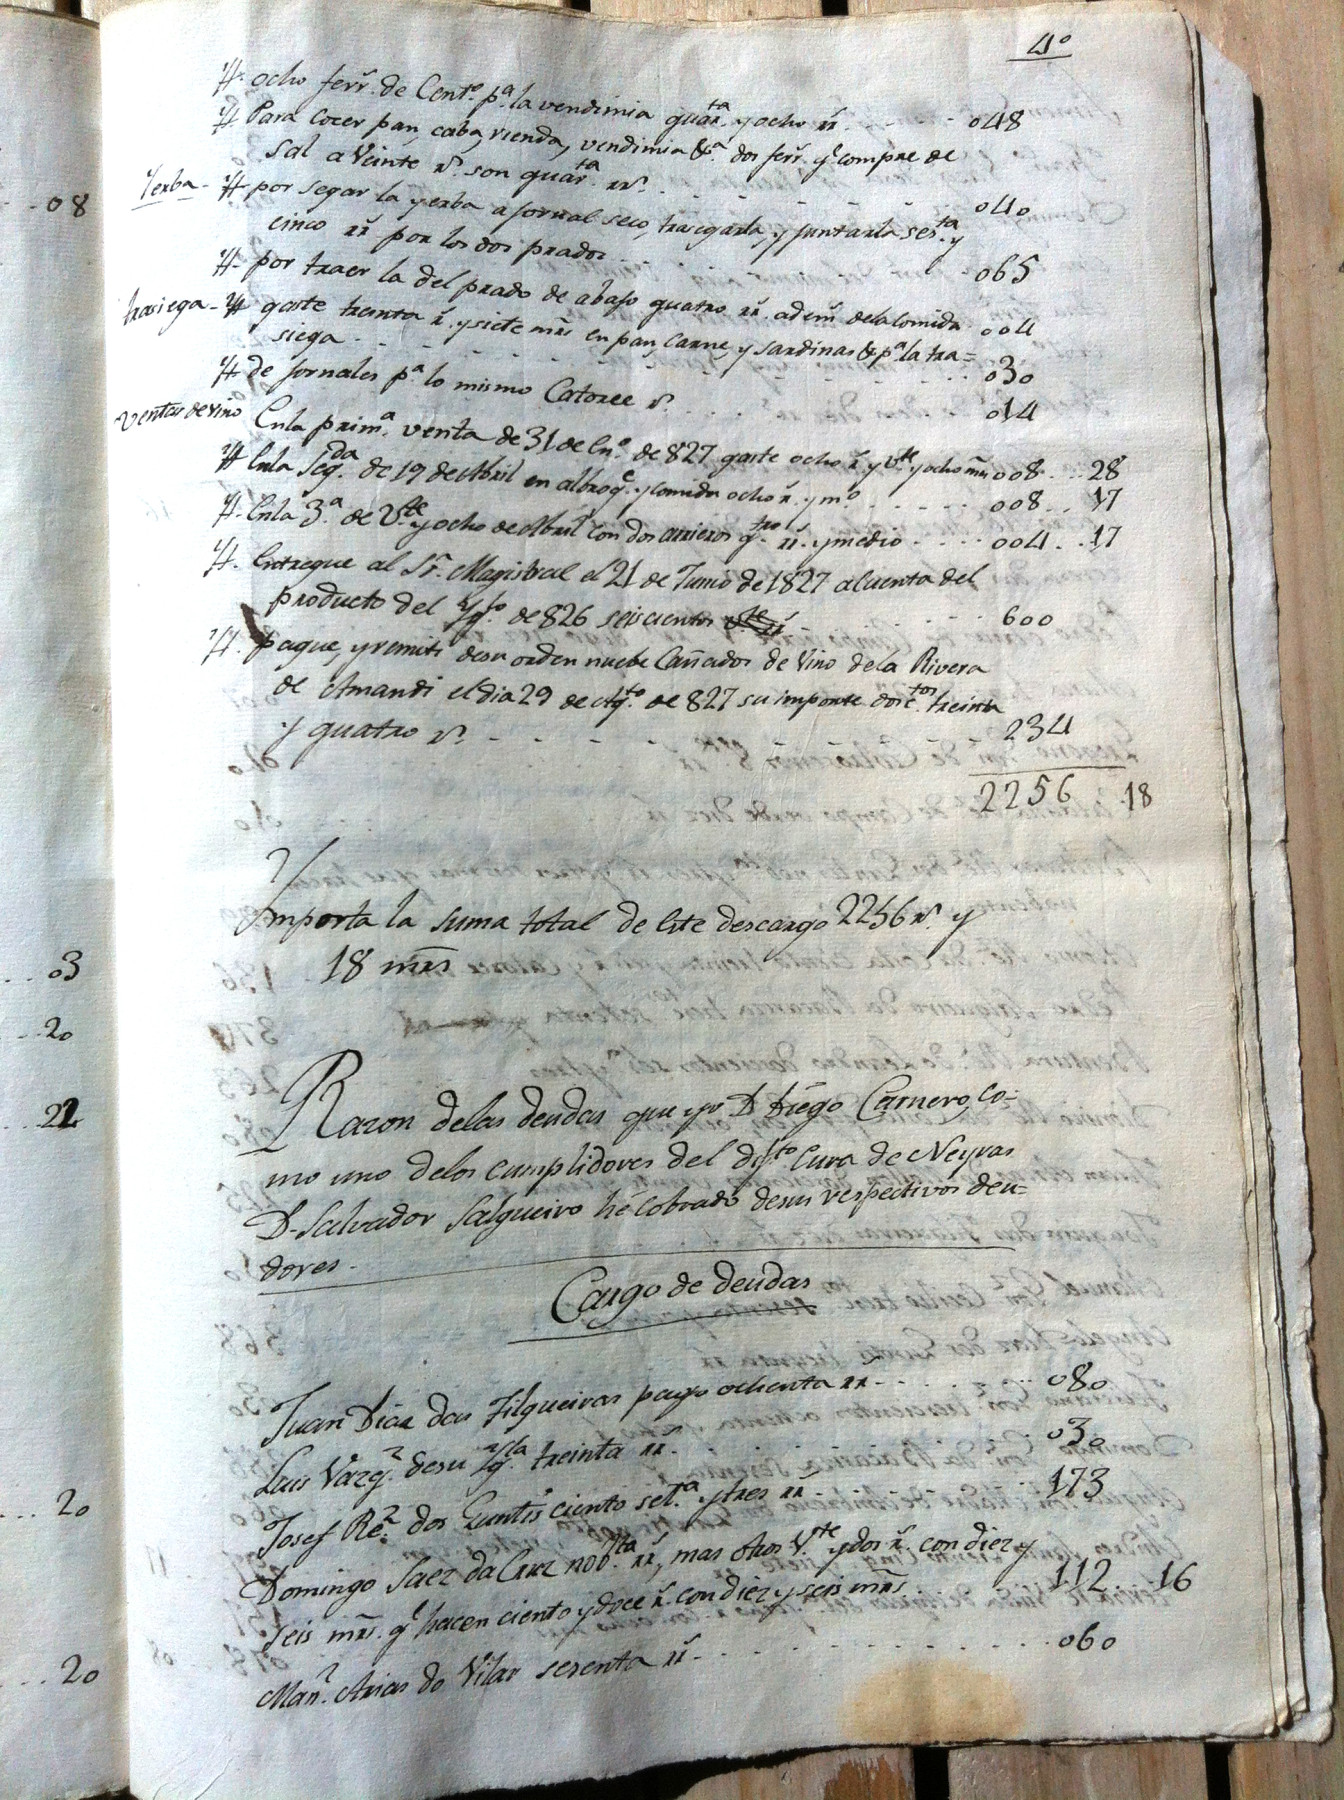 4º
Yt. ocho ferr.s de Cent.º p.ª la vendimia quar.ta y ocho rr. - - - 048
Yt. Para cocer pan, caba, rienda, vendimia &.ª dos ferr.s q.e compre de
sal a Veinte r.s son quar.ta rr.s - - - 040
Yerba - Yt. por segar la yerba a jornal seco, trasegarla, y juntarla ses.ta y
cinco rr. por los dos prados - - - 065
Yt. por traer la del prado de abajo quatro rr. adem.s dela comida - 004
trasiega - Yt. gaste treinta r.s y siete mrs en pan, Carne, y sardinas &.ª p.ª la tra=
siega - - - 030
Yt. de jornales p.ª lo mismo Catorce r.s - - - 014
Ventas de vino Enla prim.ª venta de 31 de En.º de 827 gaste ocho r.s y v.te y ocho mrs 008 .. 28
Yt. Enla Seg.da de 19 de Abril en alboroq.e y comida ocho r.s y m.º - - - 008 .. 17
Yt. Enla 3.ª de V.te y ocho de Abril con dos arrieros q.tro rr. y medio - - - 004 .. 17
Yt. Entregue al S.r Magistral el 21 de Junio de 1827 a cuenta del
producto del Yg.to de 826 seiscientos - - - 600
Yt. pague, y remiti desu orden nuebe Cañados de Vino dela Rivera
de Amandi el dia 29 de Ag.to de 827 su importe dosc.tos treinta
y quatro r.s - - - 234
2256 18
Ymporta la suma total de este descargo 2256 r.s y
18 mrs
Razon delas deudas que yo D. Diego Carnero, co-
mo uno delos cumplidores del dif.to Cura de Neyras
D. Salvador Salgueiro hé Cobrado desus respectivos deu=
dores.
Cargo de deudas
Juan Diaz das Filgueiras pago ochenta rr. - - - 080
Luis Vazq.z desu Yg.la treinta rr. 030
Josef Re.z dos Quntis ciento set.ª y tres rr. 173
Domingo Saez da Cruz nob.ta rr., mas otros V.te y dos r.s con diez y
seis mrs. q.e hacen ciento y doce r.s con diez y seis mrs. 112 16
Man.l Arias do Vilar sesenta rr. - - - 060
08
03
20
22
20
20